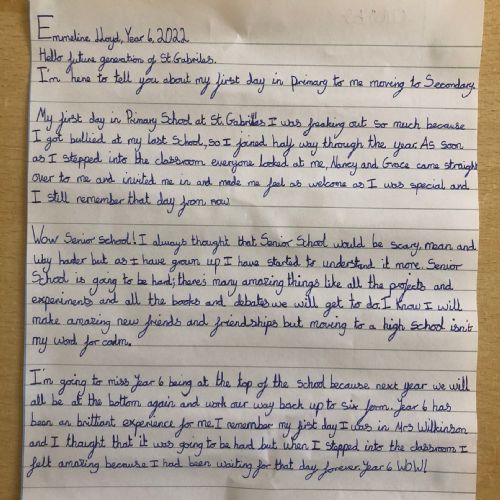 Emmeline Lloyd, Year 6, 2022
Hello future generation of St Gabriles.
I'm here to tell you about my first day in primary to me moving to Secondary
My first day in Primary School at St. Gabriles I was freaking out so much because
I got bullied at my last School, so I joined half way through the year. As soon
as I stepped into the classroom everyone looked at me, Nancy and Grace came straight
over to me and invited me in and made me feel as welcome as I was special and
I still remember that day from now
Wow Senior school! I always thought that Senior School would be scary, mean and
way harder but as I have grown up I have started to understand it more. Senior
School is going to be hard; there's many amazing things like all the projects and
experiments and all the books and debates we will get to do. I know I will
make amazing new friends and friendships but moving to a high school isn't
my word for calm.
I'm going to miss Year 6 being at the top of the school because next year we will
all be at the bottom again and work our way back up to six form. Year 6 has
been an brilliant experience for me. I remember my first day I was in Mrs Wilkinson
and I thought that it was going to be hard but when I stepped into the classroom I
felt amazing because I had been waiting for that day forever. Year 6 WOW!